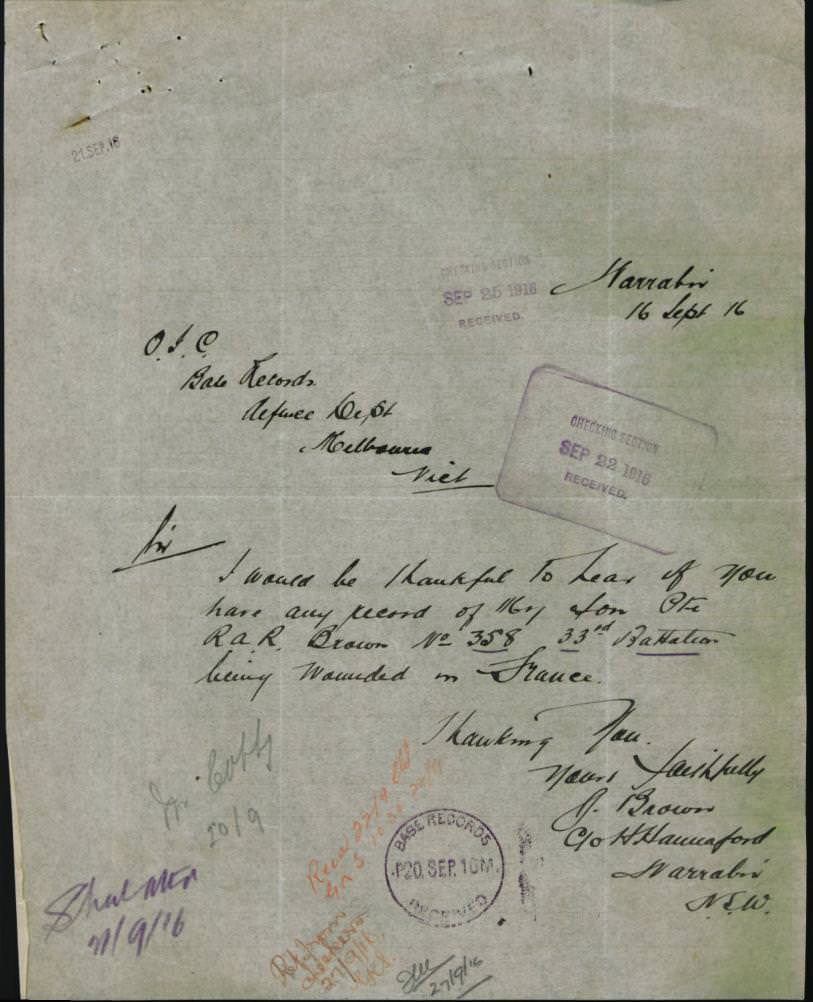 21.SEP.16
CHECKING SECTION
SEP 25 1916
RECEIVED.
Narrabri
16 Sept 16
O. I. C.
Base Records
Defence Dept
Melbourne
Vict
CHECKING SECTION
SEP 22 1916
RECEIVED.
Sir
I would be thankful to hear if you
have any record of My son Pte
R. A. R. Brown No 358 33rd Battalion
being Wounded in France.
Thanking You.
Yours faithfully
J. Brown
C/o H Hannaford
Narrabri
N.S.W.
20/9
BASE RECORDS
P20.SEP.16M.
RECEIVED
27/9/16
27/9/16